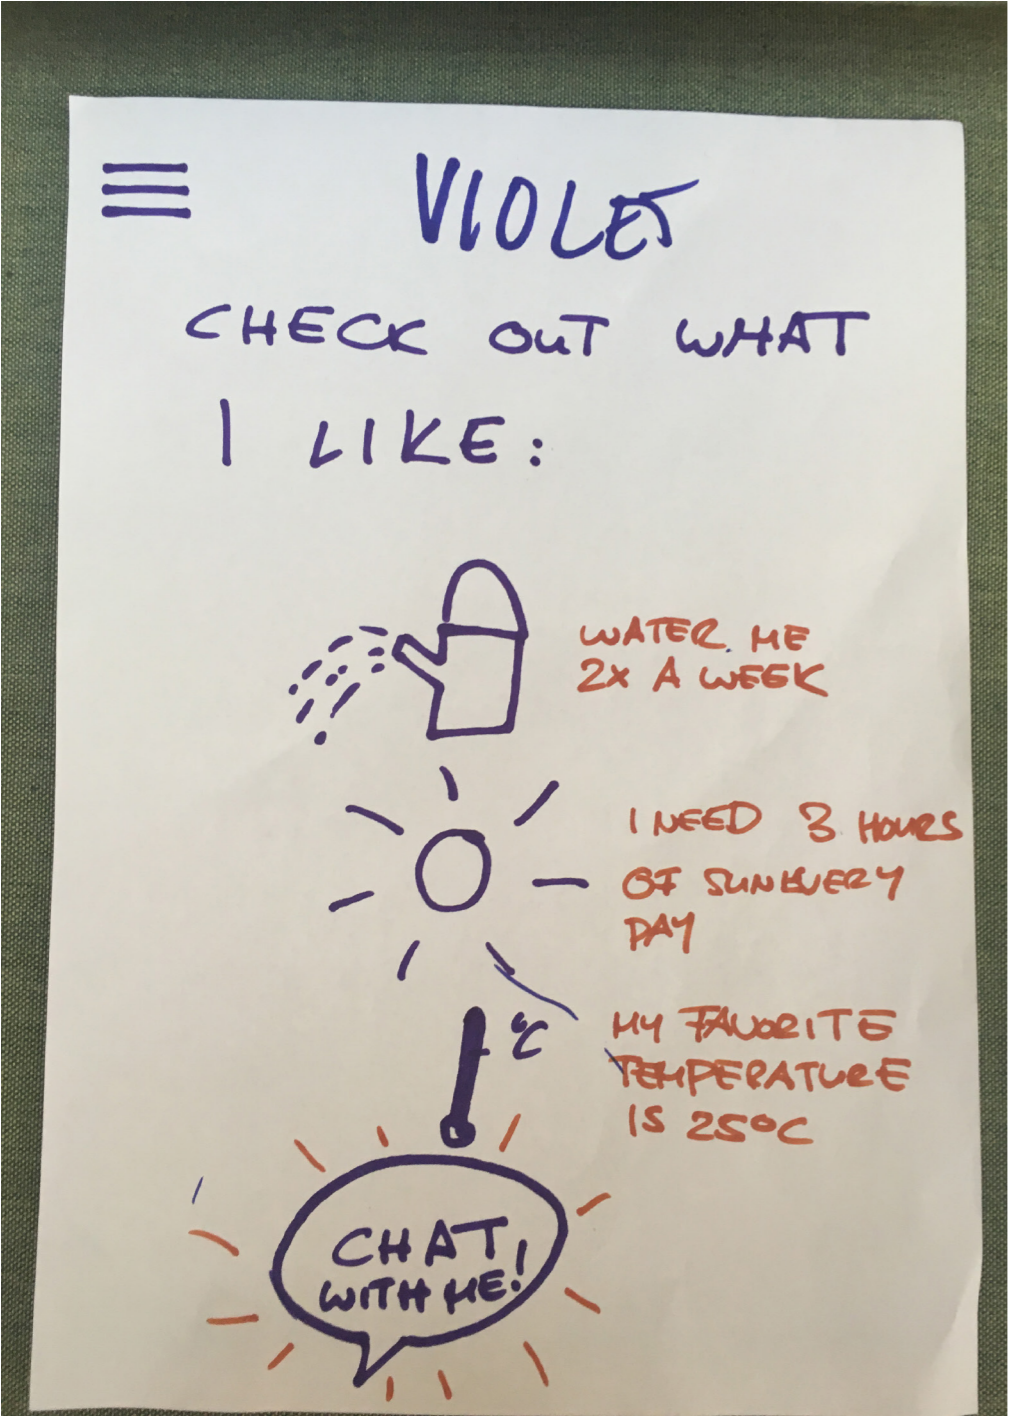 VIOLET
CHECK OUT WHAT
I LIKE:
WATER ME
2X A WEEK
I NEED 3 HOURS
OF SUN EVERY
DAY
°C
MY FAVORITE
TEMPERATURE
IS 25°C
CHAT
WITH ME!